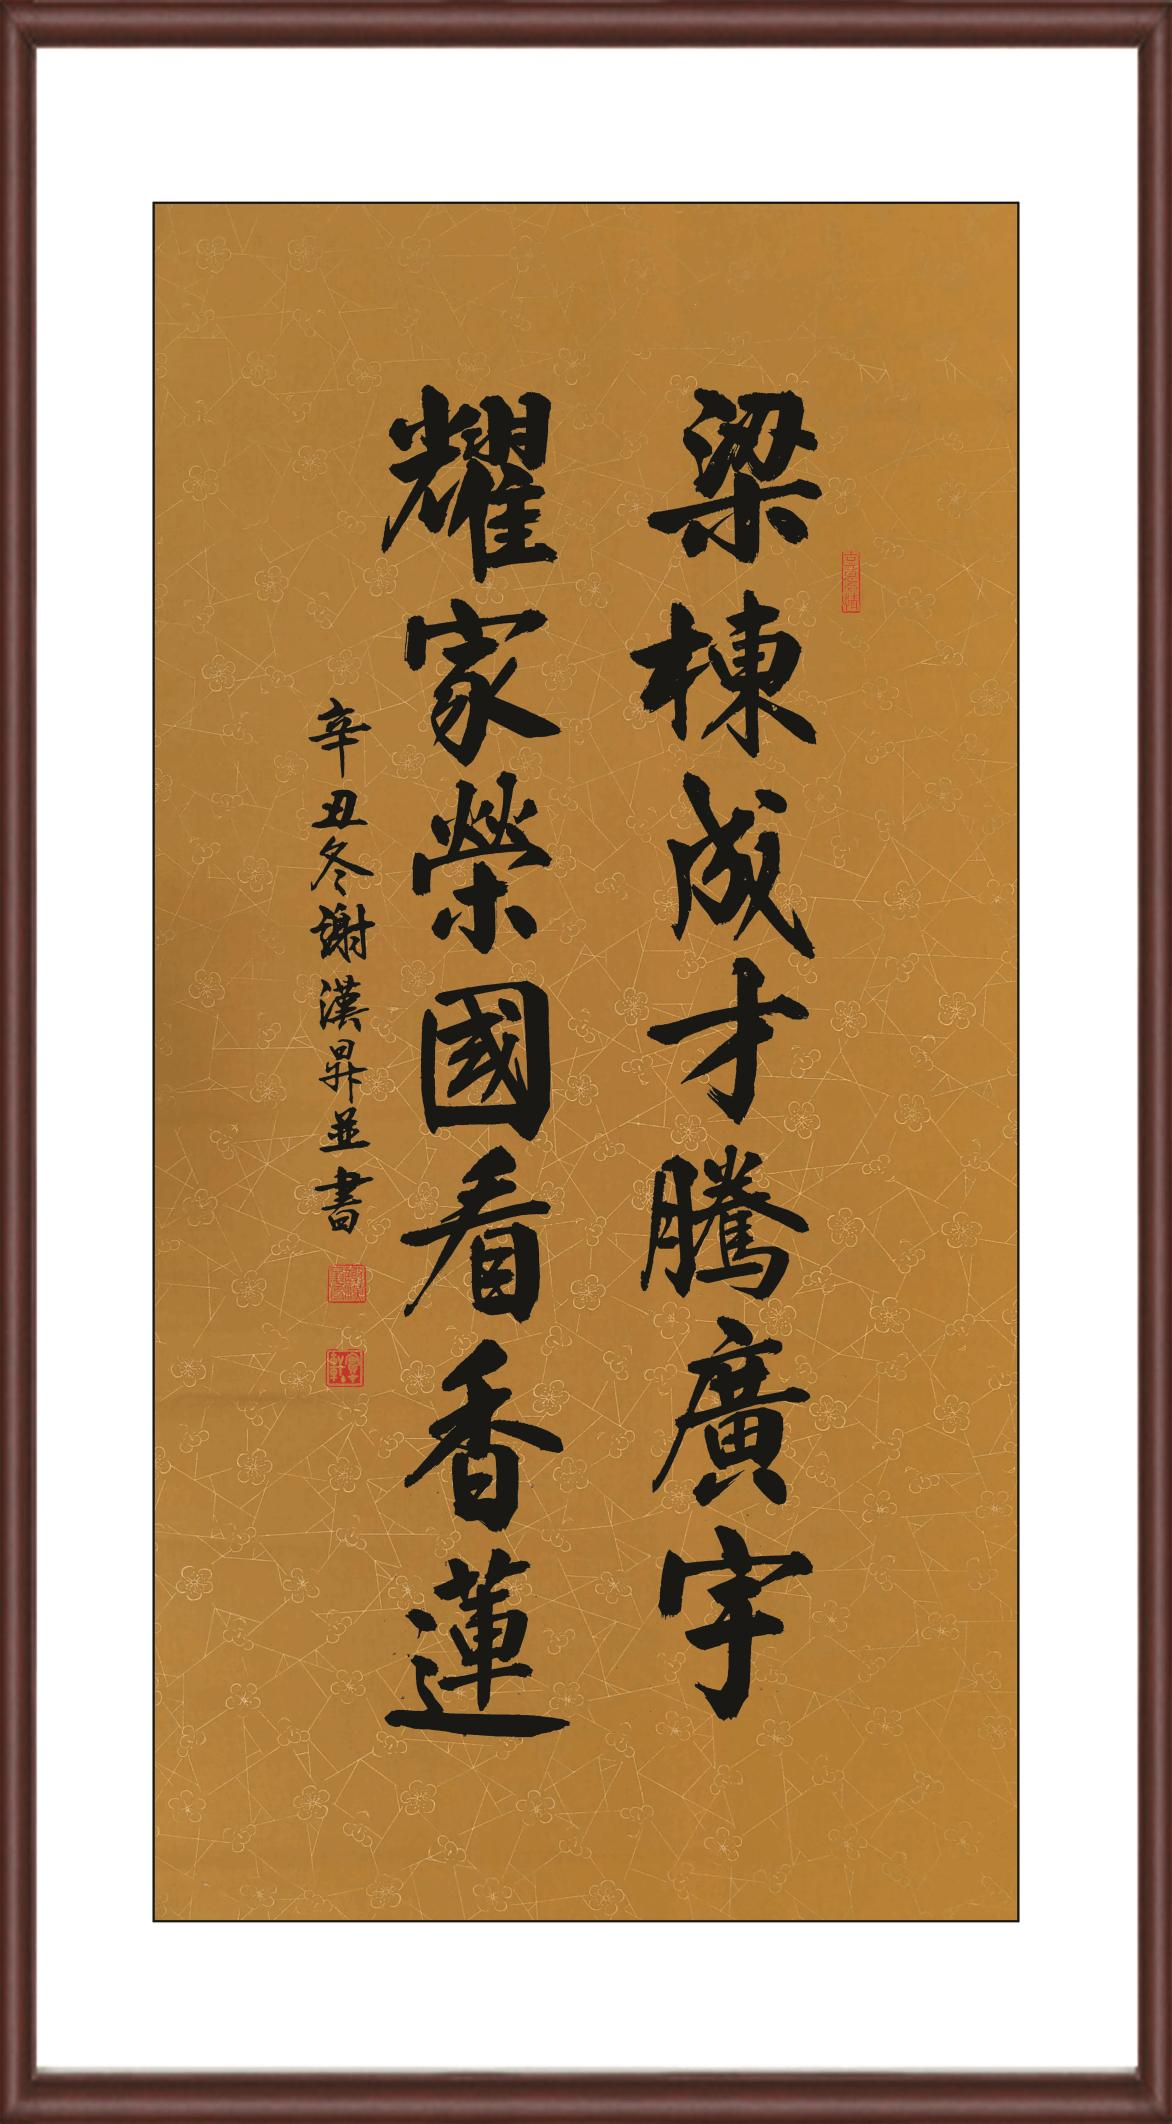 梁棟成才騰廣宇
耀家榮國看香蓮
辛丑冬謝漢昇並書